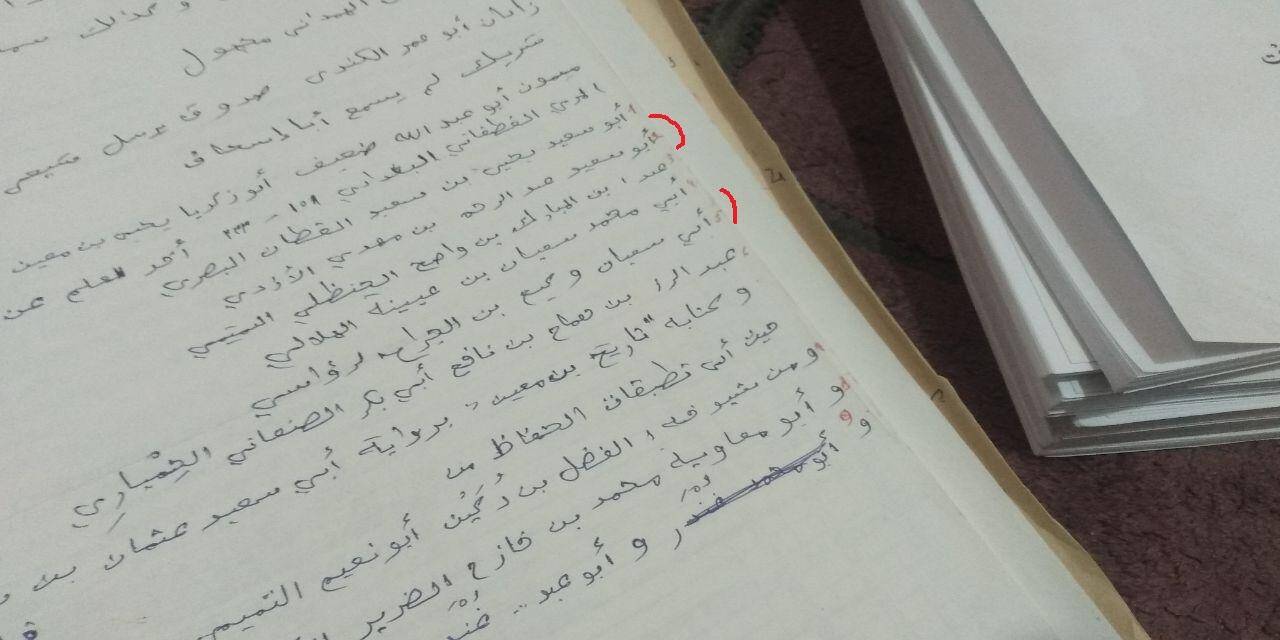 و كذلك
الهمداني مجهول
زاذان أبو عمر الكندي صدوق يرسل
شريك لم يسمع أبا إسحاق
ميمون أبو عبد الله ضعيف أبو زكريا يحيى بن معين
المري الغطفاني البغدادي ١٥٨ - ٢٣٣ أحد
أبو سعيد يحيى بن سعيد القطان البصري
أبو سعيد عبد الرحمن بن مهدي الأزدي
عبد ا بن المبارك بن واضح الحنظلي التميمي
أبي محمد سفيان بن عيينة الهلالي
أبي سفيان وكيع بن الجراح الرؤاسي
عبد الرزا بن همام بن نافع أبي بكر الصنعاني الحِمْيَارِي
و كتابه "تاريخ بن معين" برواية أبي سعيد عثمان بن
حيث أتى تطبقات الحفاظ من
ومن شيوخه: الفضل بن دُكَيْن أبو نعيم التميمي
و أبو معاوية محمد بن خازم الضرير
و أبو محمد و أبو عبد